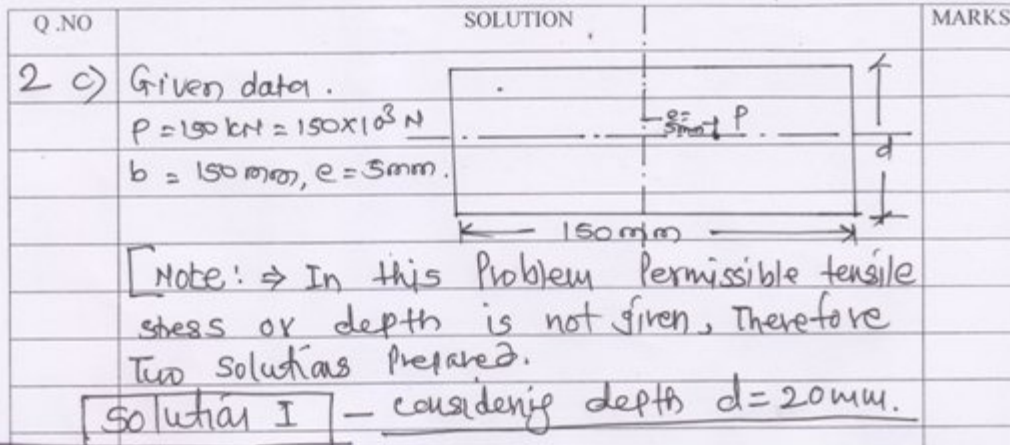 Q.NO SOLUTION MARKS
2 c) Given data.
P = 150 kN = 150×10³ N
e = 5mm P
b = 150 mm, e = 5mm.
d
150mm
[Note: ⇒ In this Problem Permissible tensile
stress or depth is not given, Therefore
Two Solutions Prepared.
Solution I – considering depth d = 20mm.